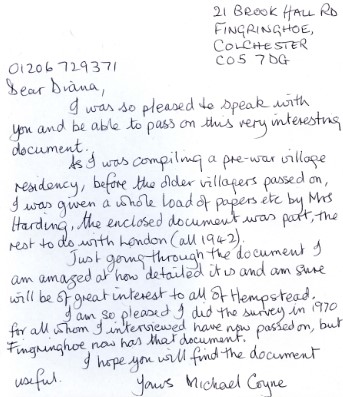 21 BROOK HALL RD
FINGRINGHOE,
COLCHESTER
CO5 7DG
01206 729371
Dear Diana,
I was so pleased to speak with
you and be able to pass on this very interesting
document.
As I was compiling a pre-war village
residency, before the older villagers passed on,
I was given a whole load of papers etc by Mrs
Harding, the enclosed document was part, the
rest to do with London (all 1942).
Just going through the document I
am amazed at how detailed it is and am sure
will be of great interest to all of Hempstead.
I am so pleased I did the survey in 1970
for all whom I interviewed have now passed on, but
Fingringhoe now has that document.
I hope you will find the document
useful.
Yours Michael Coyne